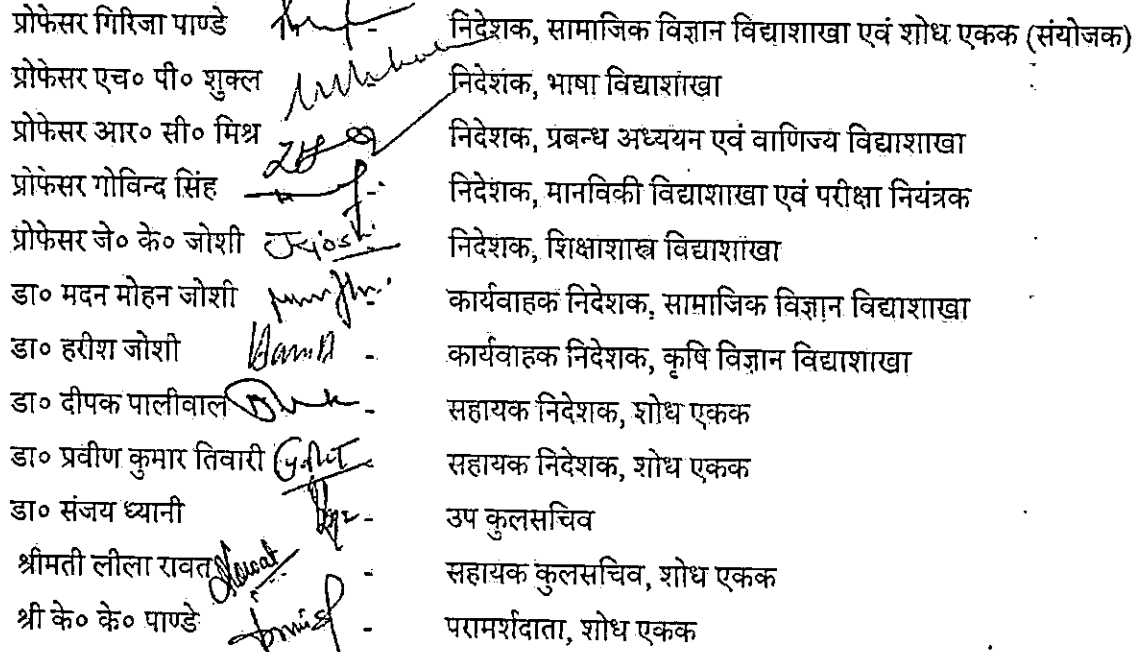 प्रोफेसर गिरिजा पाण्डे - निदेशक, सामाजिक विज्ञान विद्याशाखा एवं शोध एकक (संयोजक)
प्रोफेसर एच० पी० शुक्ल निदेशक, भाषा विद्याशाखा
प्रोफेसर आर० सी० मिश्र निदेशक, प्रबन्ध अध्ययन एवं वाणिज्य विद्याशाखा
प्रोफेसर गोविन्द सिंह - निदेशक, मानविकी विद्याशाखा एवं परीक्षा नियंत्रक
प्रोफेसर जे० के० जोशी निदेशक, शिक्षाशास्त्र विद्याशाखा
डा० मदन मोहन जोशी कार्यवाहक निदेशक, सामाजिक विज्ञान विद्याशाखा
डा० हरीश जोशी - कार्यवाहक निदेशक, कृषि विज्ञान विद्याशाखा
डा० दीपक पालीवाल - सहायक निदेशक, शोध एकक
डा० प्रवीण कुमार तिवारी सहायक निदेशक, शोध एकक
डा० संजय ध्यानी - उप कुलसचिव
श्रीमती लीला रावत - सहायक कुलसचिव, शोध एकक
श्री के० के० पाण्डे - परामर्शदाता, शोध एकक